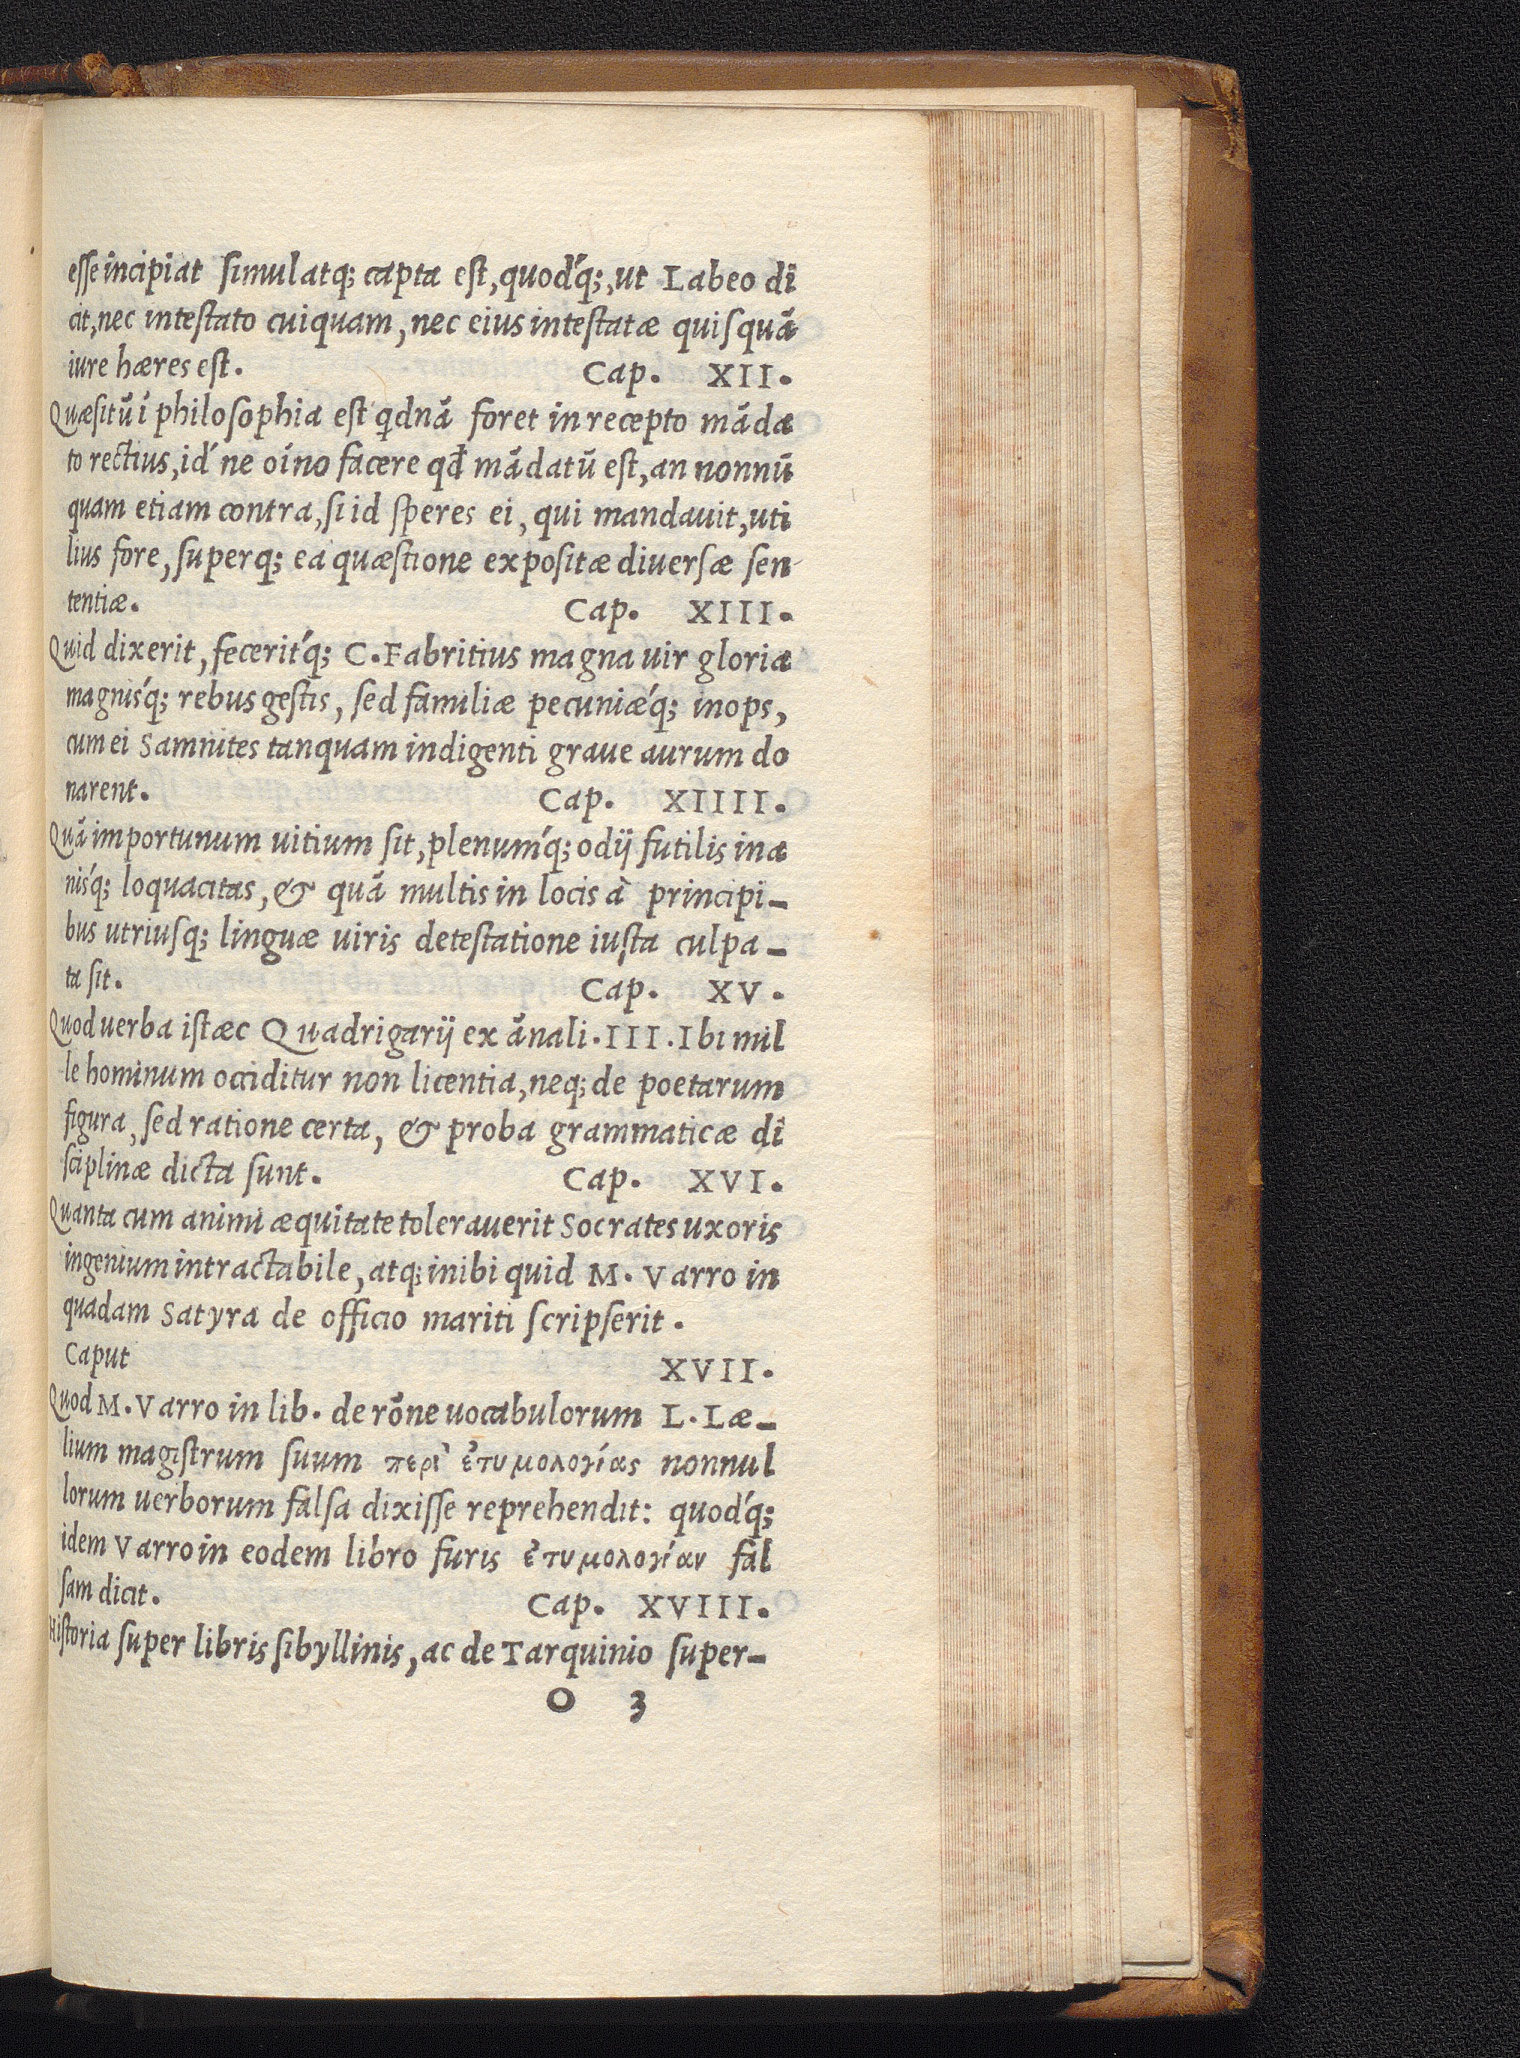 esse incipiat simulatq; capta est, quod'q;, ut Labeo di
cit, nec intestato cuiquam, nec eius intestatæ quisquã
iure hæres est. Cap. XII.
Quæsitũ ĩ philosophia est qdnã foret in recepto mãda
to rectius, id' ne oĩno facere qđ mãdatũ est, an nonnũ
quam etiam contra, si id speres ei, qui mandauit, uti
lius fore, superq; ea quæstione expositæ diuersæ sen-
tentiæ. Cap. XIII.
Quid dixerit, fecerit'q; C. Fabritius magna uir gloria
magnis'q; rebus gestis, sed familiæ pecuniæ'q; inops,
cum ei Samnites tanquam indigenti graue aurum do
narent. Cap. XIIII.
Quã importunum uitium sit, plenum'q; odij futilis ina
nis'q; loquacitas, & quã multis in locis à principi-
bus utriusq; linguæ uiris detestatione iusta culpa-
ta sit. Cap. XV.
Quod uerba istæc Quadrigarij ex ãnali. III. Ibi mil
le hominum occiditur non licentia, neq; de poetarum
figura, sed ratione certa, & proba grammaticæ di
sciplinæ dicta sunt. Cap. XVI.
Quanta cum animi æquitate tolerauerit Socrates uxoris
ingenium intractabile, atq; inibi quid M. Varro in
quadam Satyra de officio mariti scripserit.
Caput XVII.
Quod M. Varro in lib. de rõne uocabulorum L. Læ-
lium magistrum suum περὶ ἐτυμολογίας nonnul
lorum uerborum falsa dixisse reprehendit: quod'q;
idem Varro in eodem libro furis ἐτυμολογίαν fal
sam dicit. Cap. XVIII.
Historia super libris sibyllinis, ac de Tarquinio super-
O 3